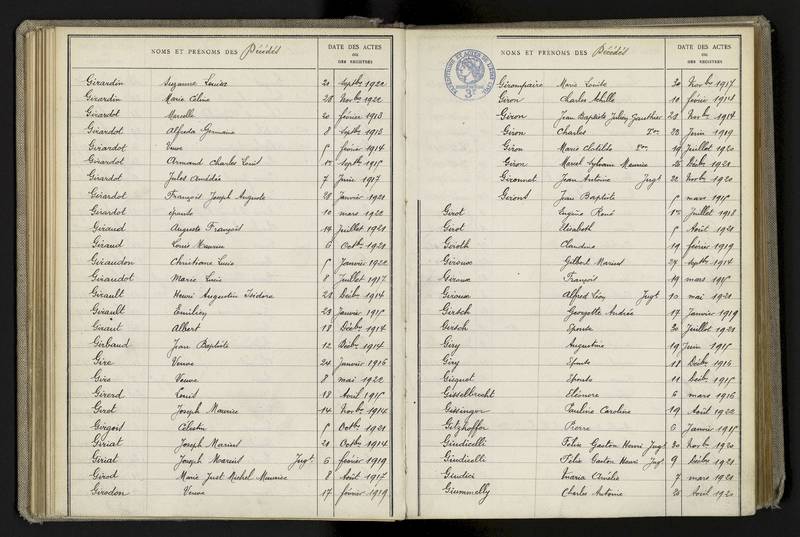 NOMS ET PRÉNOMS DES Décédés
DATE DES ACTES
OU
DES REGISTRES
Girardin Suzanne Louise 20 Septbre 1922
Girardin Marie Céline 28 Novbre 1922
Girardot Marcelle 20 février 1913
Girardot Alfreda Germaine 8 Septbre 1913
Girardot Veuve 5 février 1914
Girardot Armand Charles Louis Septbre 1915
Girardot Jules Amédée 7 Juin 1917
Girardot François Joseph Auguste 28 Janvier 1921
Girardot épouse 10 mars 1922
Giraud Auguste François 14 Juillet 1921
Giraud Louis Maurice 6 Octbre 1921
Giraudon Christiane Lucie 5 Janvier 1922
Giraudot Marie Lucie 8 Juillet 1917
Girault Henri Augustin Isidore 28 Décbre 1914
Girault Emilien 23 Janvier 1915
Giraut Albert 18 Décbre 1914
Girbaud Jean Baptiste 12 Décbre 1914
Gire Veuve 24 Janvier 1916
Gire Veuve 8 mai 1922
Girerd Louis 18 Avril 1915
Girot Joseph Maurice 14 Novbre 1914
Célestin 5 Octbre 1921
Giriat Joseph Marius 20 Octbre 1914
Giriat Joseph Marius Jugt 6 février 1919
Girod Marie Just Michel Maurice 8 Août 1917
Girodon Veuve 17 février 1919
NOMS ET PRÉNOMS DES Décédés
DATE DES ACTES
OU
DES REGISTRES
3e
Girompaire Marie Louise 30 Novbre 1917
Giron Charles Achille 10 février 1914
Giron Jean Baptiste Julien Gauthier 28 Novbre 1914
Giron Charles Von 23 Juin 1919
Giron Marie Clotilde Von 19 Juillet 1920
Giron Marcel Sylvain Maurice 26 Décbre 1921
Gironnet Jean Antoine Jugt 22 Novbre 1920
Géront Jean Baptiste 5 mars 1915
Girot Eugène René 1er Juillet 1918
Girot Elisabeth 5 Août 1921
Giroth Claudine 19 février 1919
Giroux Gilbert Marius 27 Septbre 1914
Giroux François 19 mars 1915
Giroux Alfred Léon Jugt 10 mai 1921
Girsch Georgette Andrée 17 Janvier 1919
Girsch Epouse 30 Juillet 1921
Giry Augustine 19 Juin 1915
Giry Epouse 18 Décbre 1916
Epouse 11 Décbre 1915
Gisselbrecht Eléonore 6 mars 1916
Gissinger Pauline Caroline 19 Août 1922
Gitzhoffer Pierre 6 Janvier 1915
Giudicelli Félix Gaston Henri Jugt 30 Novbre 1920
Giudicelli Félix Gaston Henri Jugt 9 Décbre 1921
Giudici Maria Amélie 7 mars 1921
Giummelly Charles Antoine 21 Avril 1920